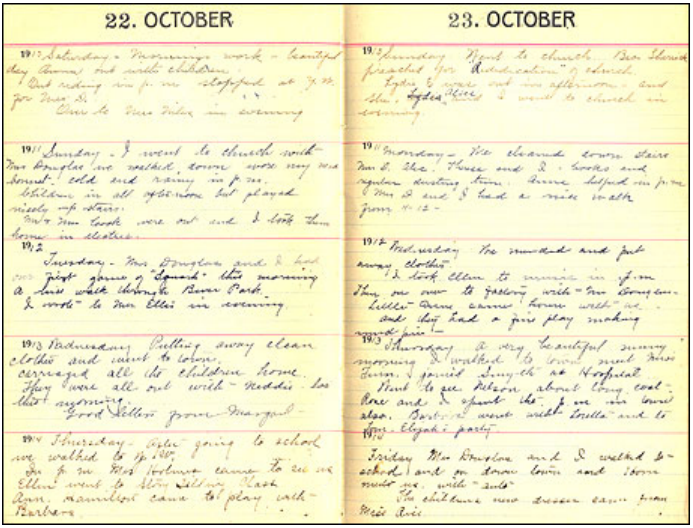 22. OCTOBER
1910 Saturday - Mornings work - beautiful
day Anna out with children.
Out riding in p.m. stopped at
for Mrs D.
in evening
1911 Sunday - I went to church with
Mrs Douglas, we walked down wore my new
bonnet. cold and rainy in p.m.
Children in all afternoon but played
nicely up stairs.
Mr & Mrs Cook were out and I took them
home in electric.
1912
Tuesday - Mrs Douglas and I had
our first game of "Squash" this morning
A nice walk through River Park.
I wrote to Mrs Ellis in evening
1913 Wednesday Putting away clean
clothes and went to town.
carriaged all the children home.
They were all out with Neddie
this morning.
Good letters from
1914 Thursday - After going to school
we walked to
In p.m. Mrs Holmes came to see us
Ellen went to
Ann Hamilton came to play with
Barbara.
23. OCTOBER
1910 Sunday Went to church.
preached for Rededication of church.
Lydia & I was out in afternoon - and
She, Lydia Alice and I went to church in
evening
1911 Monday - We cleaned down stairs
Mrs D. and I books and
regular dusting. Anna helped in p.m.
Mrs D and I had a nice walk
from 4-12 -
1912 Wednesday We mended and put
away clothes
I took Ellen to music in p.m
Then on over to factory with Mr Douglas -
Little came home with us.
and they had a fine play making
1913 Thursday A very beautiful sunny
morning I walked to town met Miss
joined Smyth at Hospital
Went to see Nelson about long coat -
Rose and I spent the p.m in town
also. Barbara went with Louella and to
party.
1914
Friday Mrs Douglas and I walked to
school and on down town and
met us with auto
The childrens new dresses came from
Miss